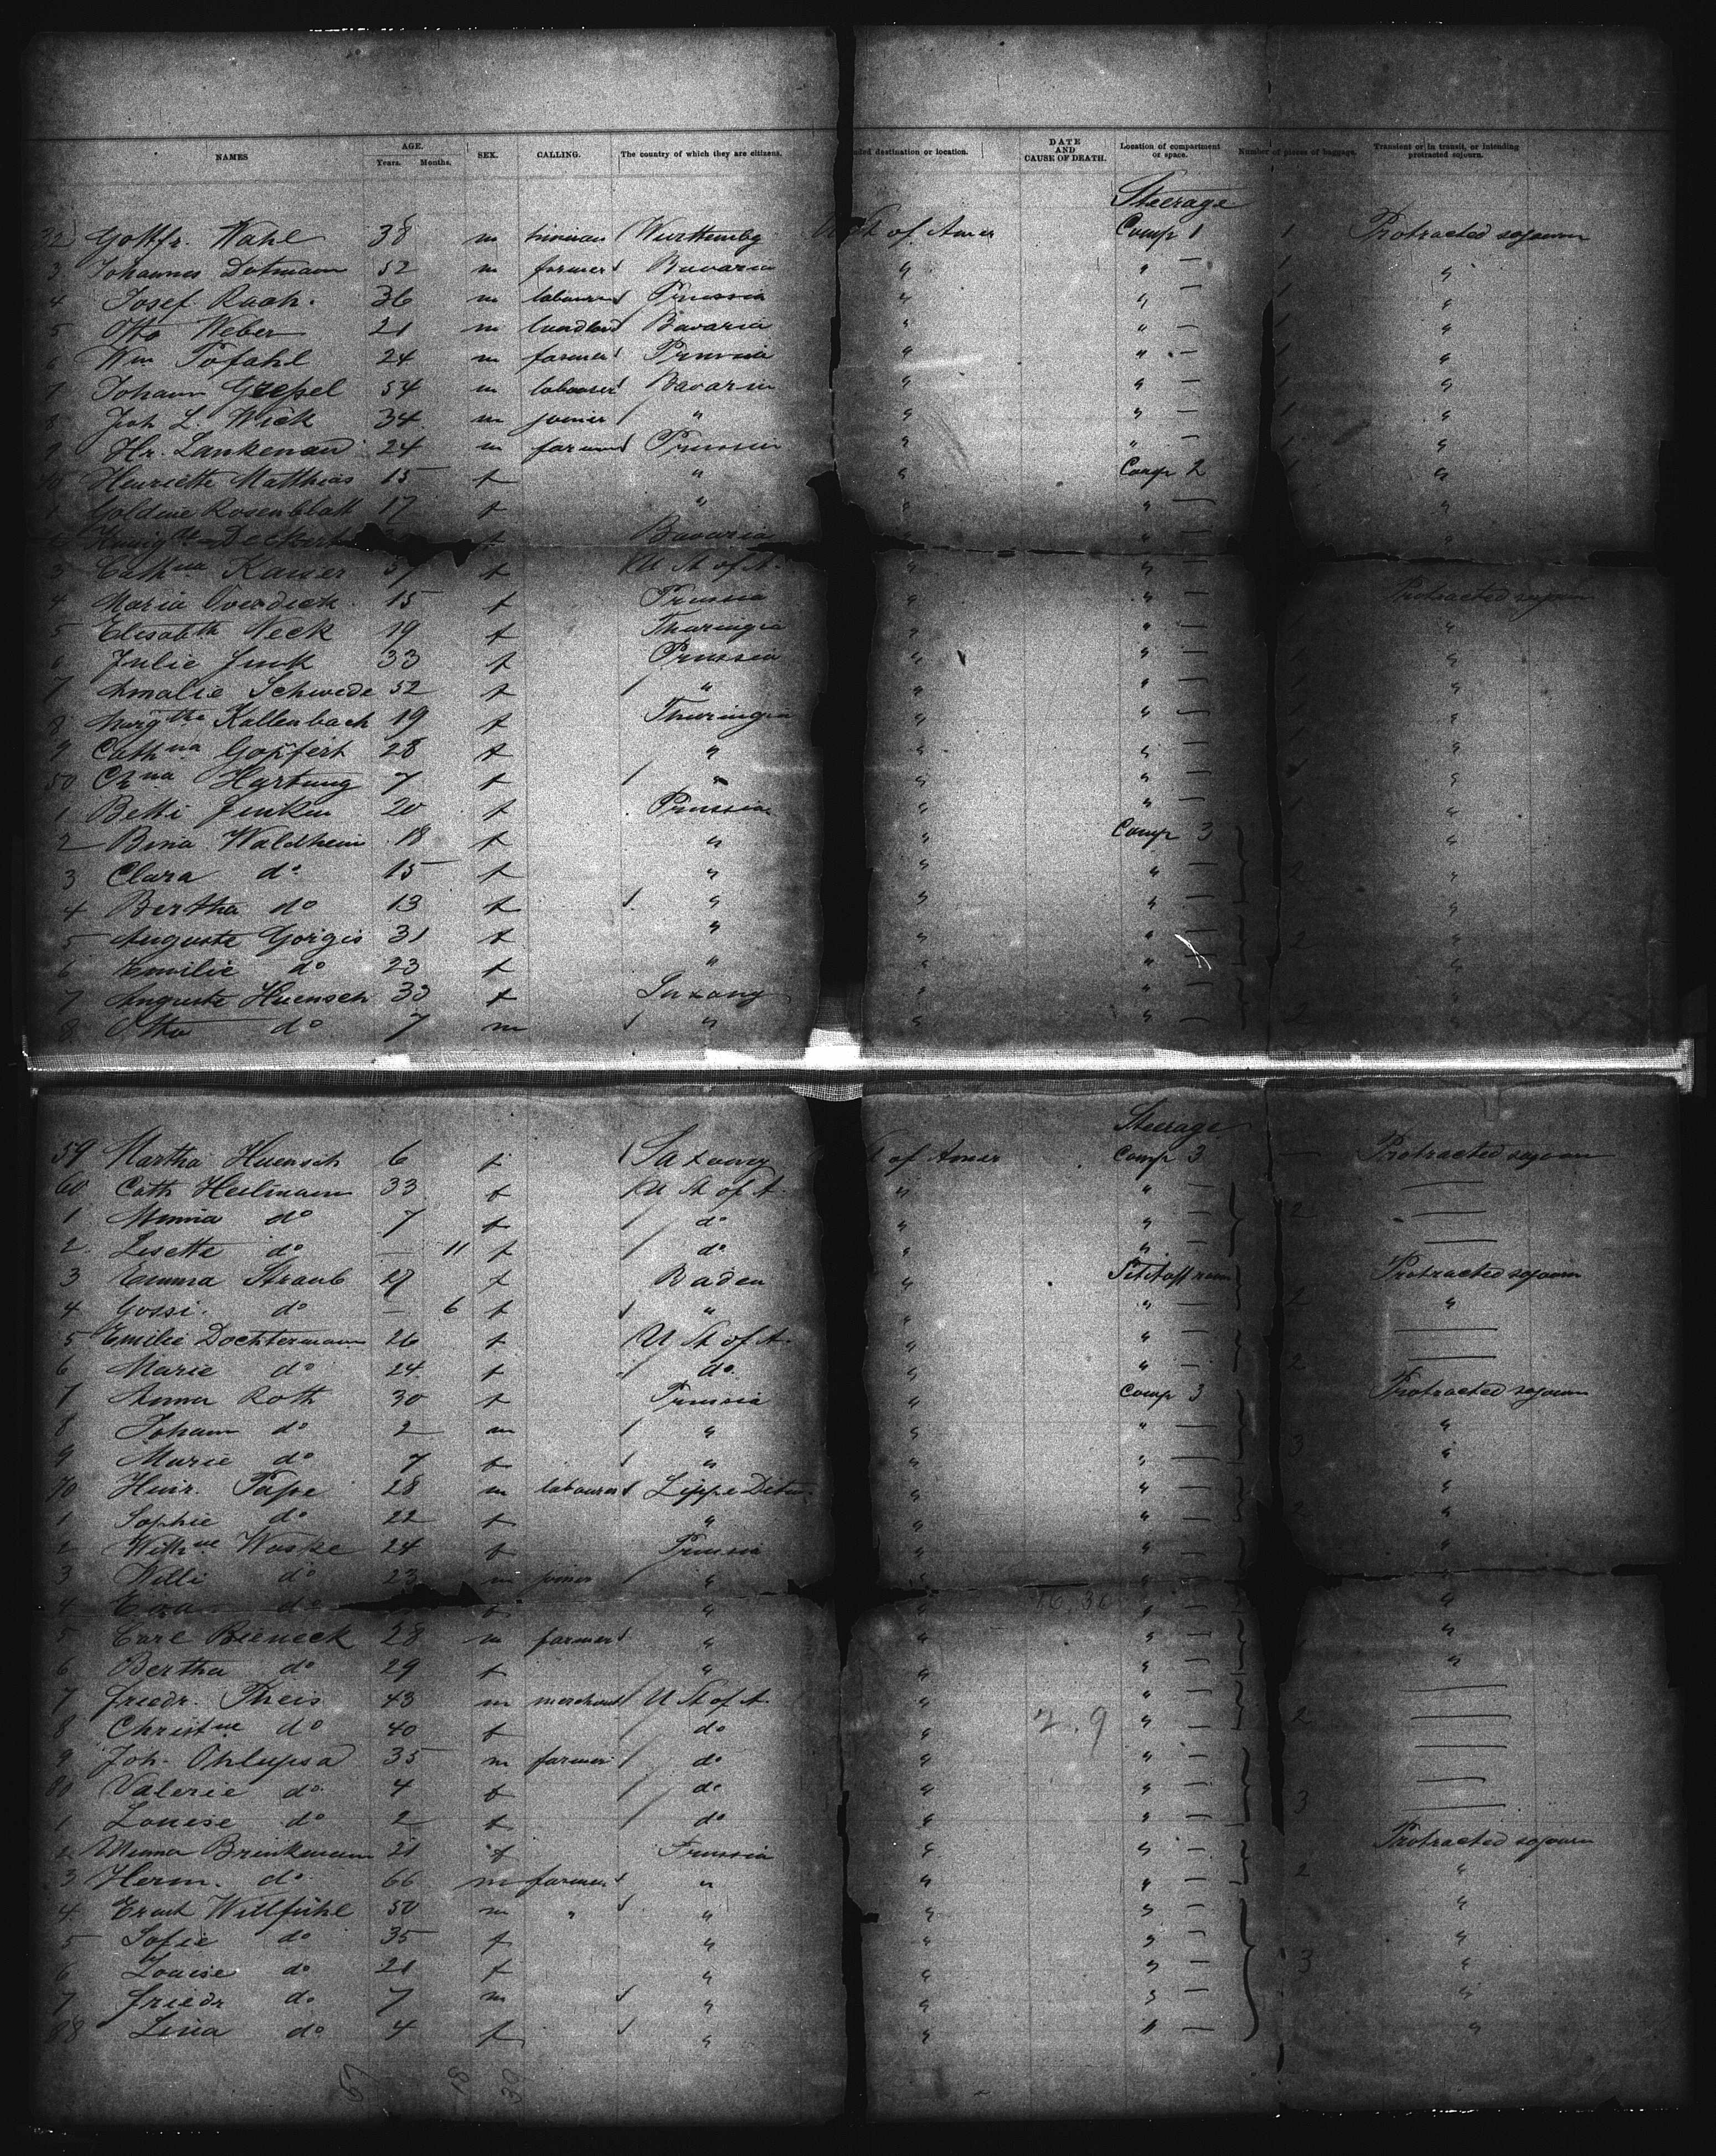 NAMES AGE. Years. Months. SEX. CALLING. The country of which they are citizens. destination or location. DATE AND CAUSE OF DEATH. Location of compartment or space. Number of pieces of baggage. Transient or in transit, or intending protracted sojourn.
Steerage
32) Gottfr. Wahl 38 m Wurttembg St of Amer Comp 1 1 Protracted sojourn
3 Johannes Dotmann 52 m farmer Bavaria " " — 1 "
4 Josef Ruoh. 36 m labourer Prussia " " — 1 "
5 Otto Weber 21 m landlord Bavaria " " — 1 "
6 Wm Pofahl 24 m farmer Prussia " " — 1 "
7 Johann 54 m labourer Bavaria " " — 1 "
8 Joh L. Wick 34 m joiner " " " — 1 "
9 Hr. Lankenau 24 m farmer Prussia " " — 1 "
40 Henriette Matthias 15 f " " Comp 2 1 "
1 Goldine Rosenblatt 17 f " " " — "
Deckert f Bavaria " — "
3 Cathna Kaiser 57 f U St of A. " " —
4 Maria Overdiek 15 f Prussia " " — Protracted sojourn
5 Elisabeth Neck 19 f Thuringia " " — 1 "
6 Julie Junk 33 f Prussia " " — 1 "
7 Amalie Schwede 52 f " " " — 1 "
8 Margthe Kallenbach 19 f Thuringia " " — 1 "
9 Cathna Göpfert 28 f " " " — 1 "
50 Chna Hartung 7 f " " " — "
1 Betti Junker 20 f Prussia " " — 1 "
2 Bina Waldheim 18 f " " Comp 3 "
3 Clara do 15 f " " " — 2 "
4 Bertha do 13 f " " " — "
5 Auguste Gorgis 31 f " " " — 2 "
6 Emilie do 23 f " " " — "
7 Auguste Huensch 33 f Saxony " " — "
8 Otto do 7 m " " " — 2 "
Steerage
59 Martha Huensch 6 f Saxony St of Amer Comp 3 — Protracted sojourn
60 Cath Heilmann 33 f U St of A. " " — —
1 Minna do 7 f do " " — 2 —
2 Lisette do — 11 f do " " — —
3 Emma Straub 27 f Baden " Protracted sojourn
4 Gossi. do — 6 f " " " — 2 "
5 Emilie Dochtermann 26 f U St of A. " " — —
6 Marie do 24 f do. " " — 2 —
7 Anna Roth 30 f Prussia " Comp 3 Protracted sojourn
8 Johann do 2 m " " " — "
9 Marie do 7 f " " " — 3 "
70 Heinr. Pape 28 m labourer Lippe Detm " " — "
1 Sophie do 22 f " " " — 2 "
2 Wilhne Waske 24 f Prussia " " — "
3 Willi do 23 m joiner " " " — "
4 Eva do f " " 16.30 " — "
5 Carl Bieneck 28 m farmer " " " — "
6 Bertha do 29 f " " " — "
7 Friedr. Theis 43 m merchant U St of A. " " — —
8 Christne do 40 f do " 2.9 " — 2 —
9 Joh. Ohlupsa 35 m farmer do " " — —
80 Valerie do 4 f do " " — —
1 Louise do 2 f do " " — 3 —
2 Minna Brinkmann 21 f Prussia " " — Protracted sojourn
3 Herm. do 66 m farmer " " " — 2 "
4 Ernst Wülfühl 50 m " " " " — "
5 Sofie do 35 f " " " — "
6 Louise do 21 f " " " — 3 "
7 Friedr do 7 m " " " — "
88 Lina do 4 f " " " — "